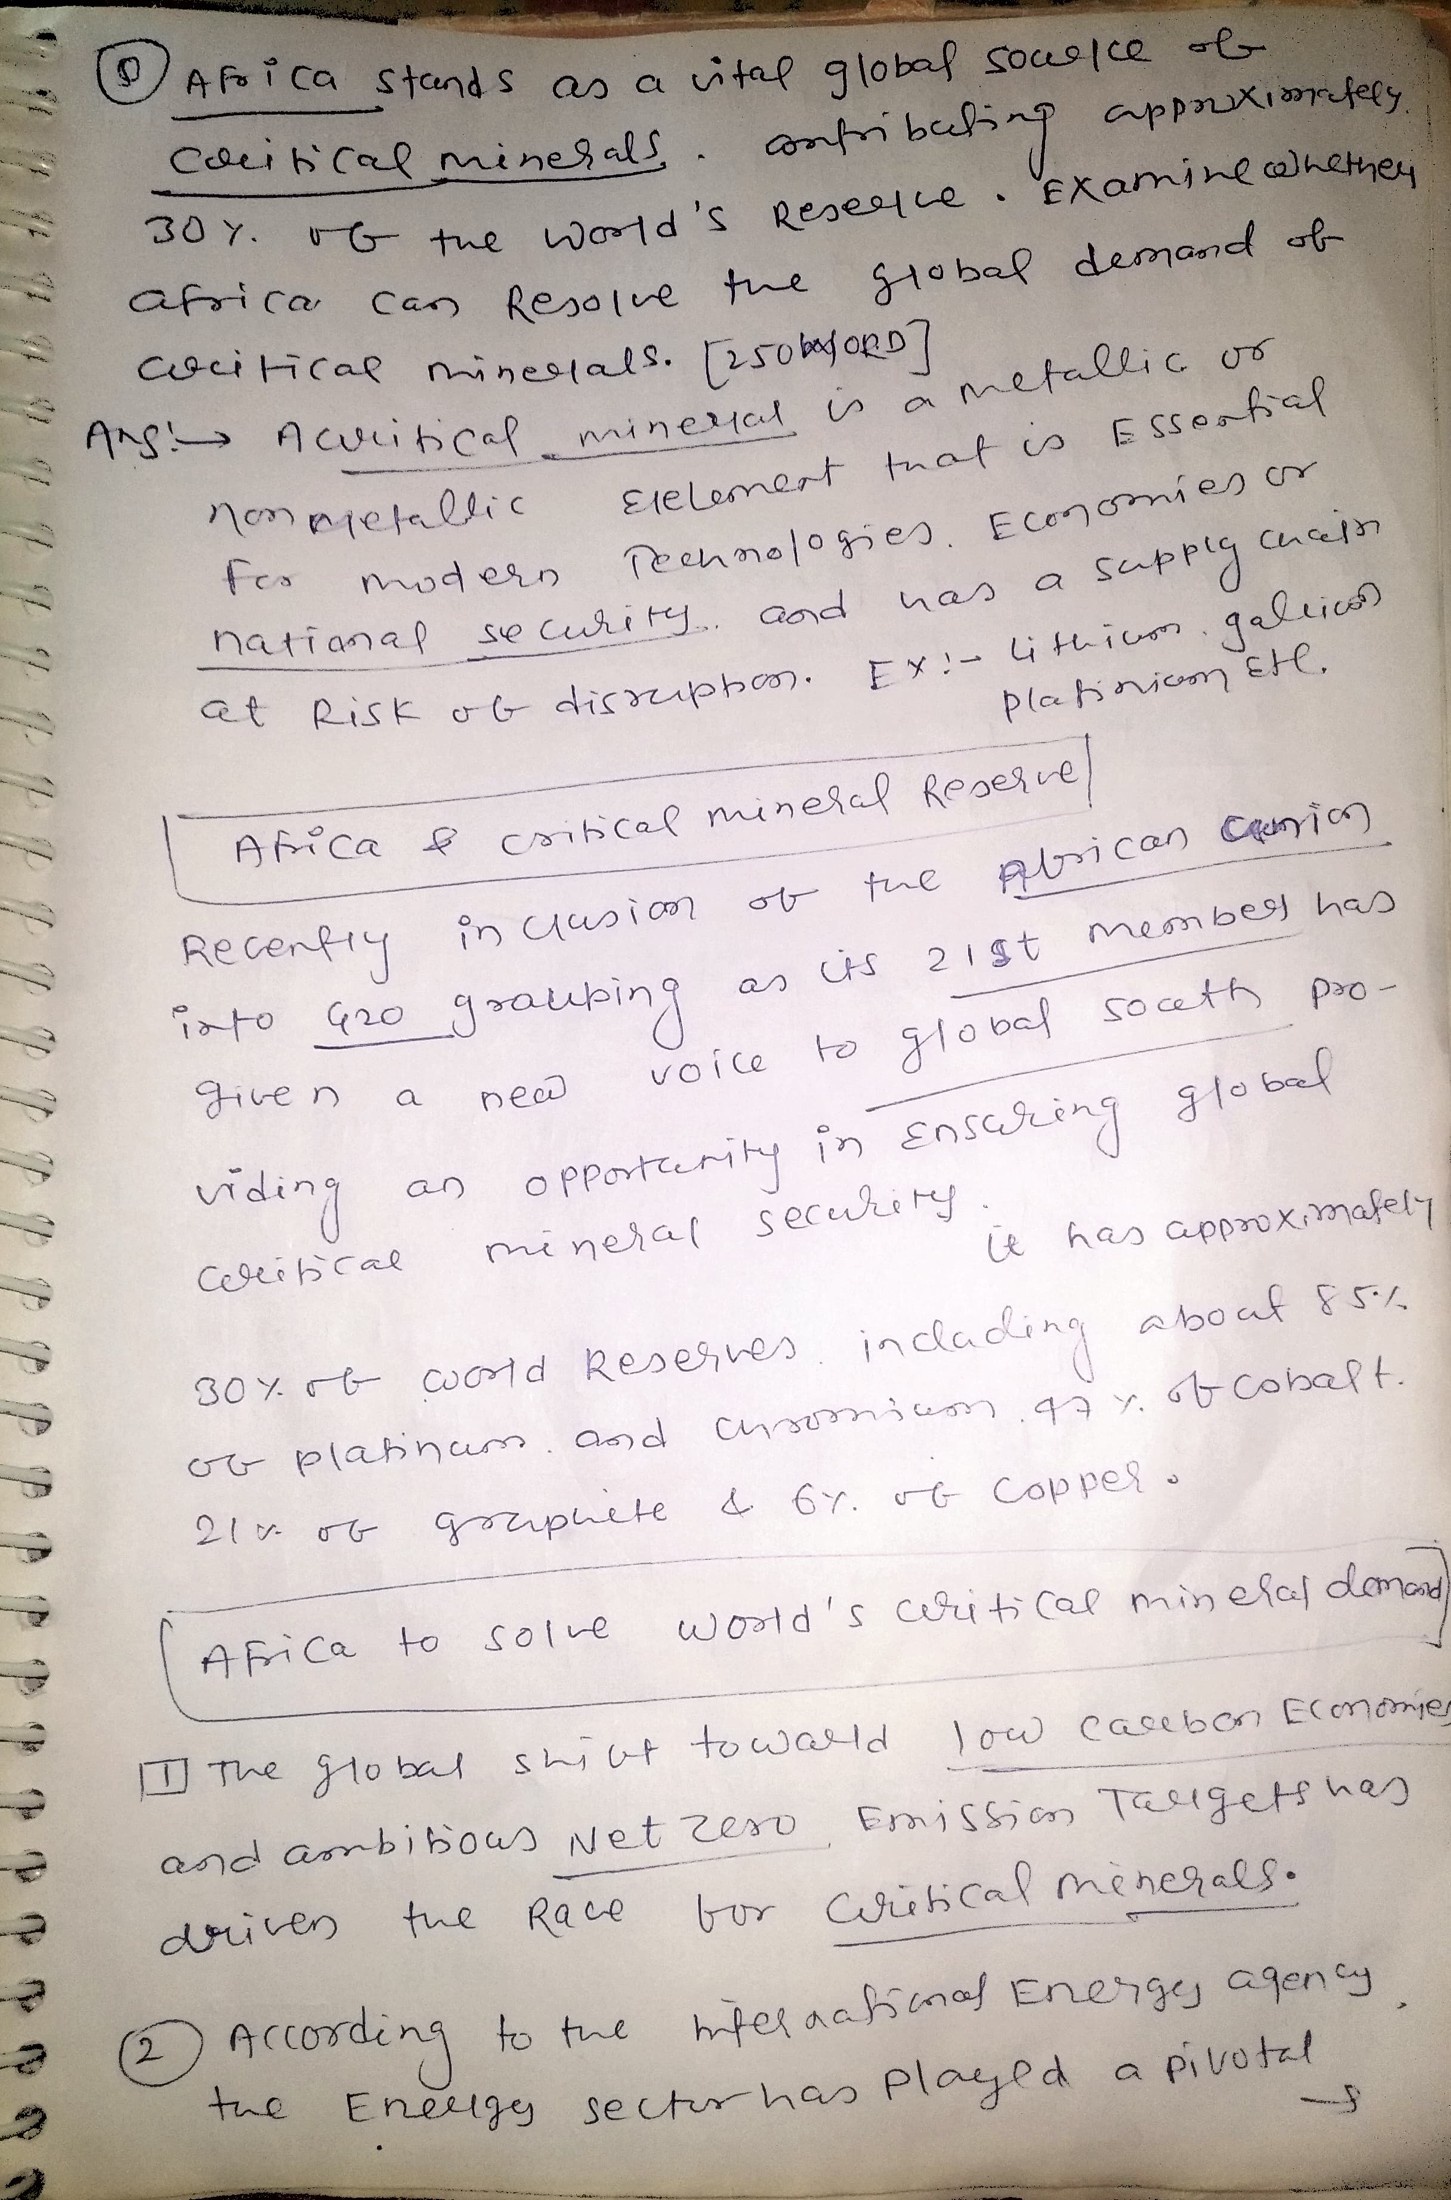 ① Africa stands as a vital global source of
critical minerals, contributing approximately
30% of the world's Reserve. Examine whether
africa can Resolve the global demand of
critical minerals. [250 WORD]
Ans:→ A critical mineral is a metallic or
non metallic Element that is Essential
for modern Technologies, Economies or
national security, and has a supply chain
at Risk of disruption. Ex:- Lithium, gallium
Platinium Etc.
Africa & critical mineral Reserve
Recently inclusion of the African union
into G20 grouping as its 21st member has
given a new voice to global south pro-
viding an opportunity in Ensuring global
critical mineral security.
it has approximately
30% of world Reserves, including about 85%
of platinum, and chromium, 47% of cobalt.
21% of graphite & 6% of copper.
Africa to solve world's critical mineral demand
1 The global shift toward low carbon Economies
and ambitious Net zero Emission Targets has
driven the Race for critical minerals.
② According to the International Energy agency,
the Energy sector has played a pivotal
→